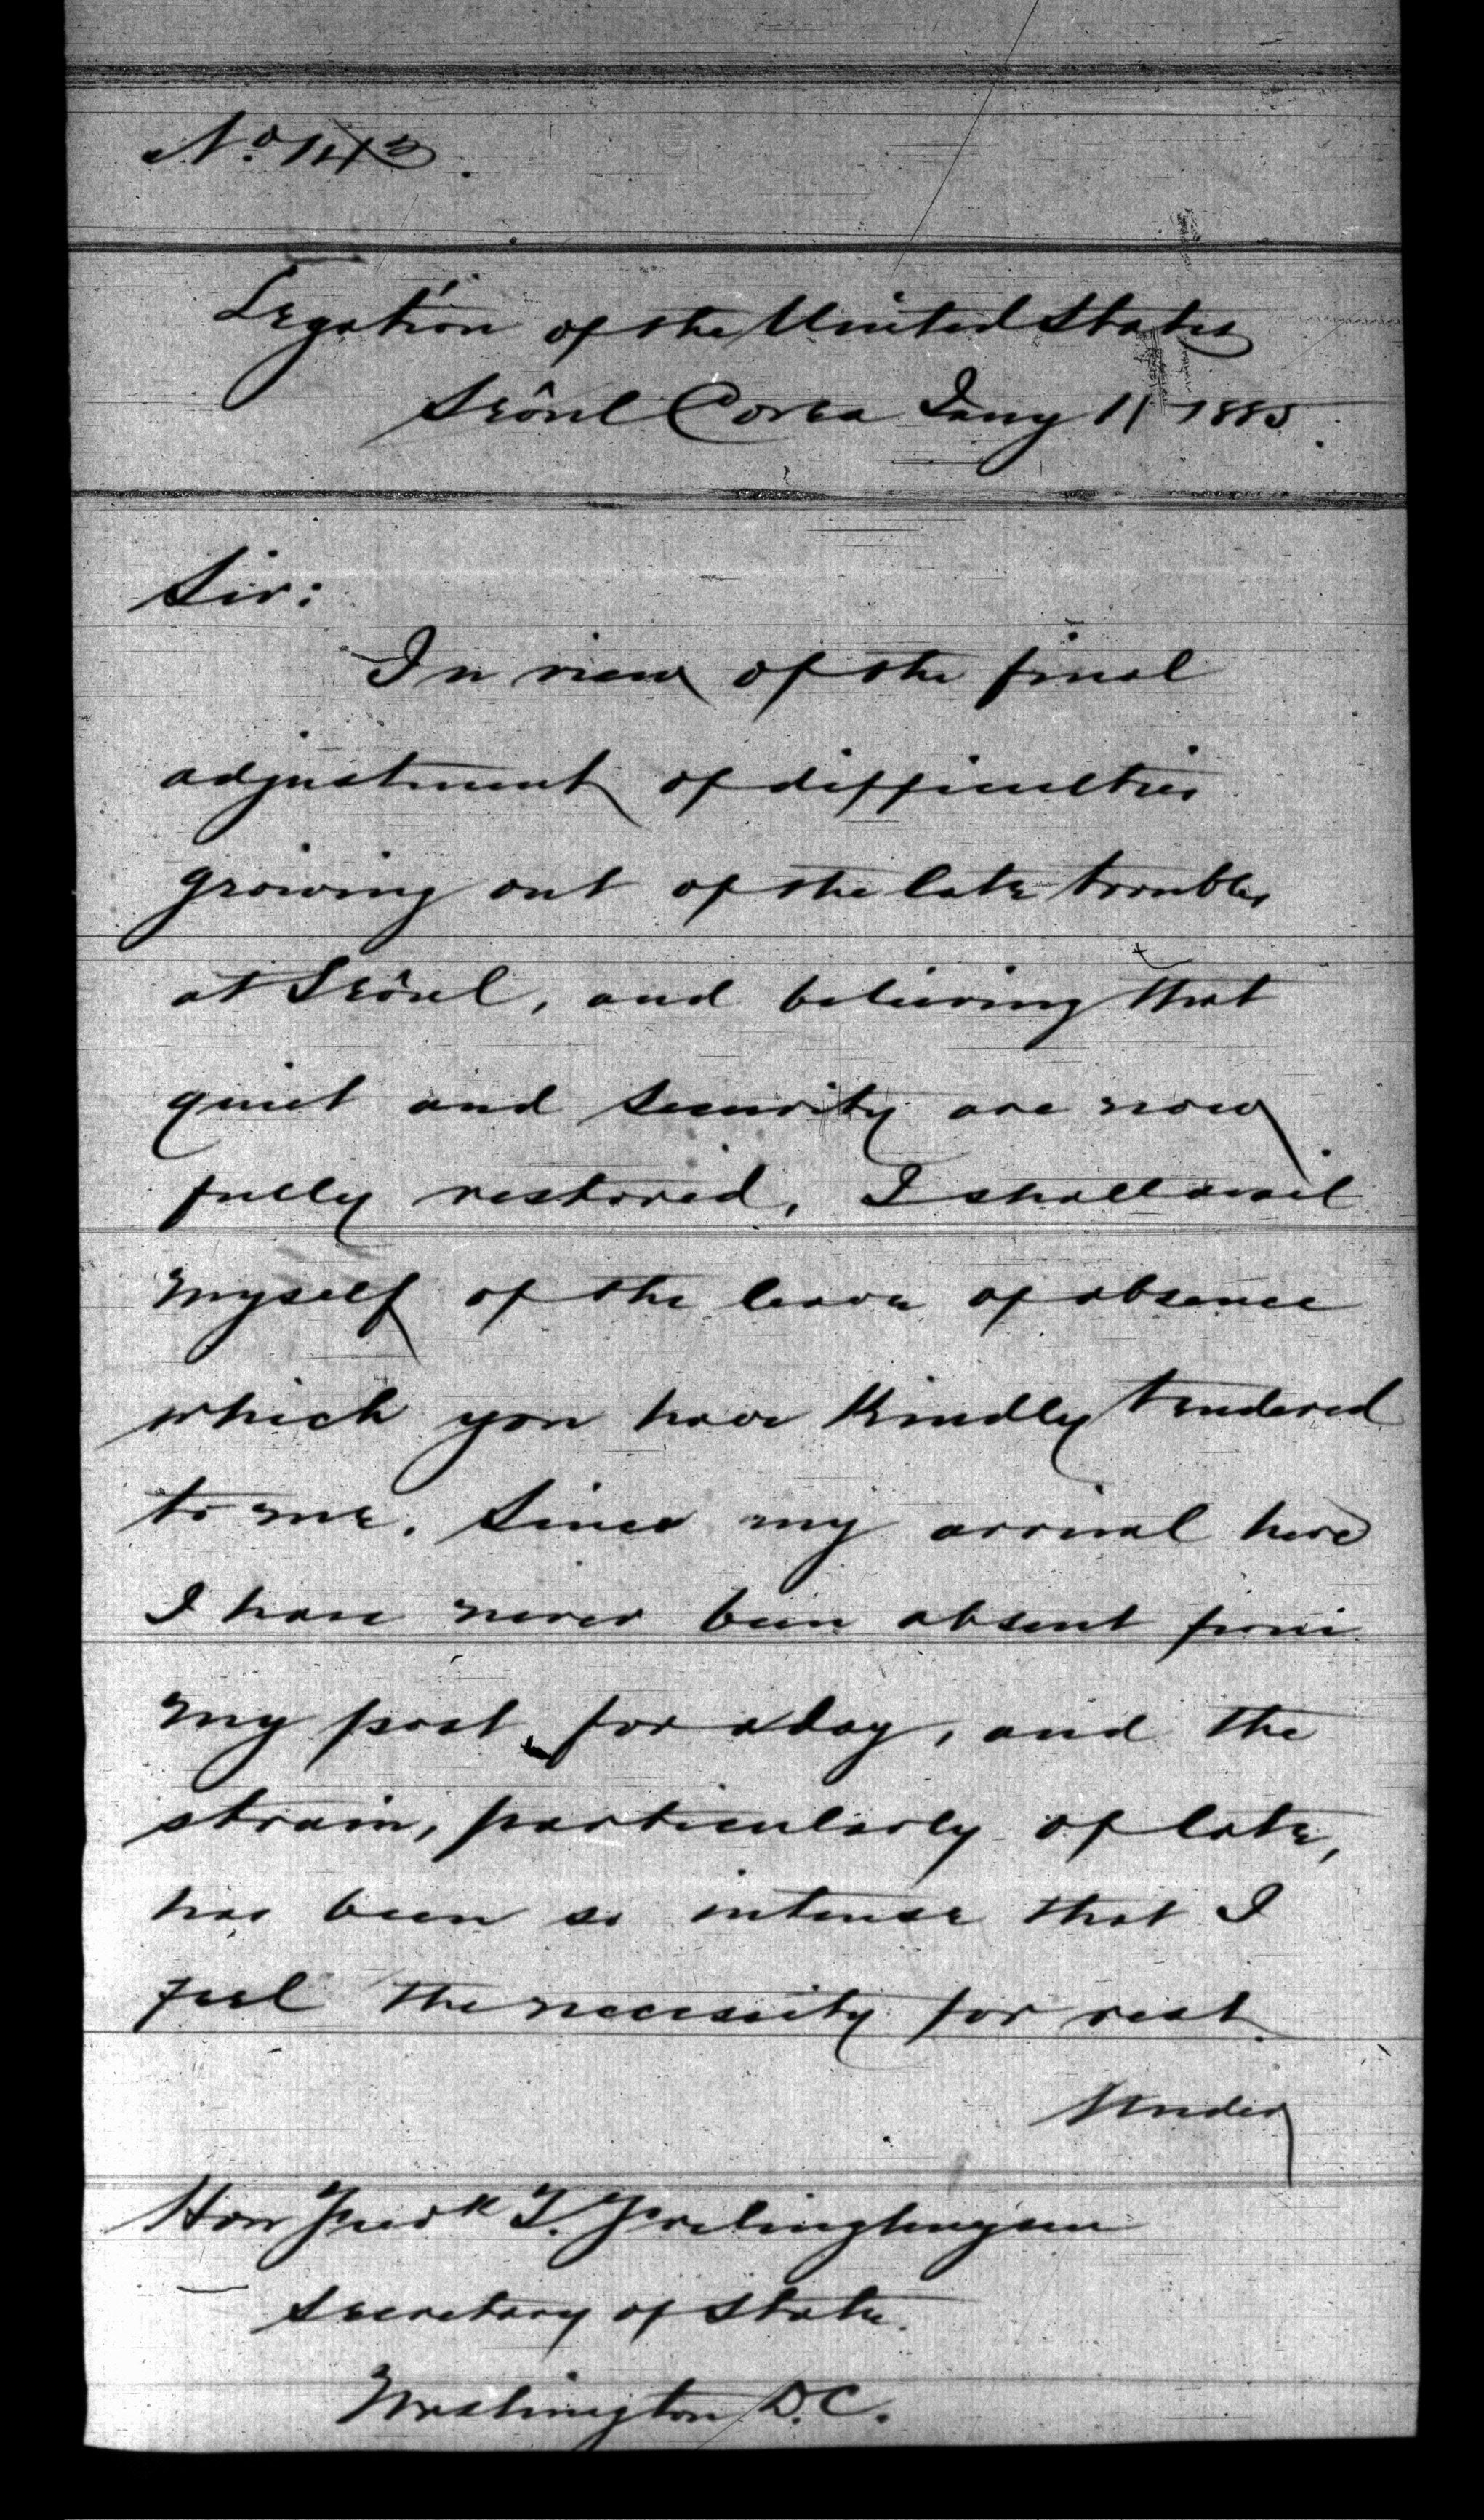 No 143.
Legation of the United States
Seôul Corea Jany 11 1885.
Sir:
In view of the final
adjustment of difficulties
growing out of the late troubles
at Seôul, and believing that
quiet and security are now
fully restored, I shall avail
myself of the leave of absence
which you have kindly tendered
to me. Since my arrival here
I have never been absent from
my post for a day, and the
strain, particularly of late,
has been so intense that I
feel the necessity for rest.
Under
Hon Fredk T. Frelinghuysen
Secretary of State.
Washington D.C.